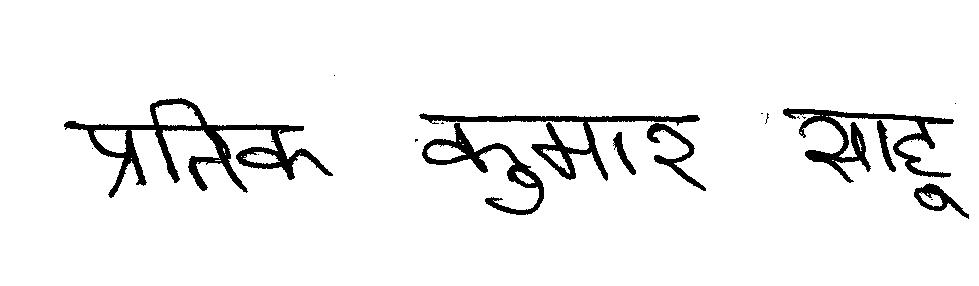 प्रतिक कुमार साहू